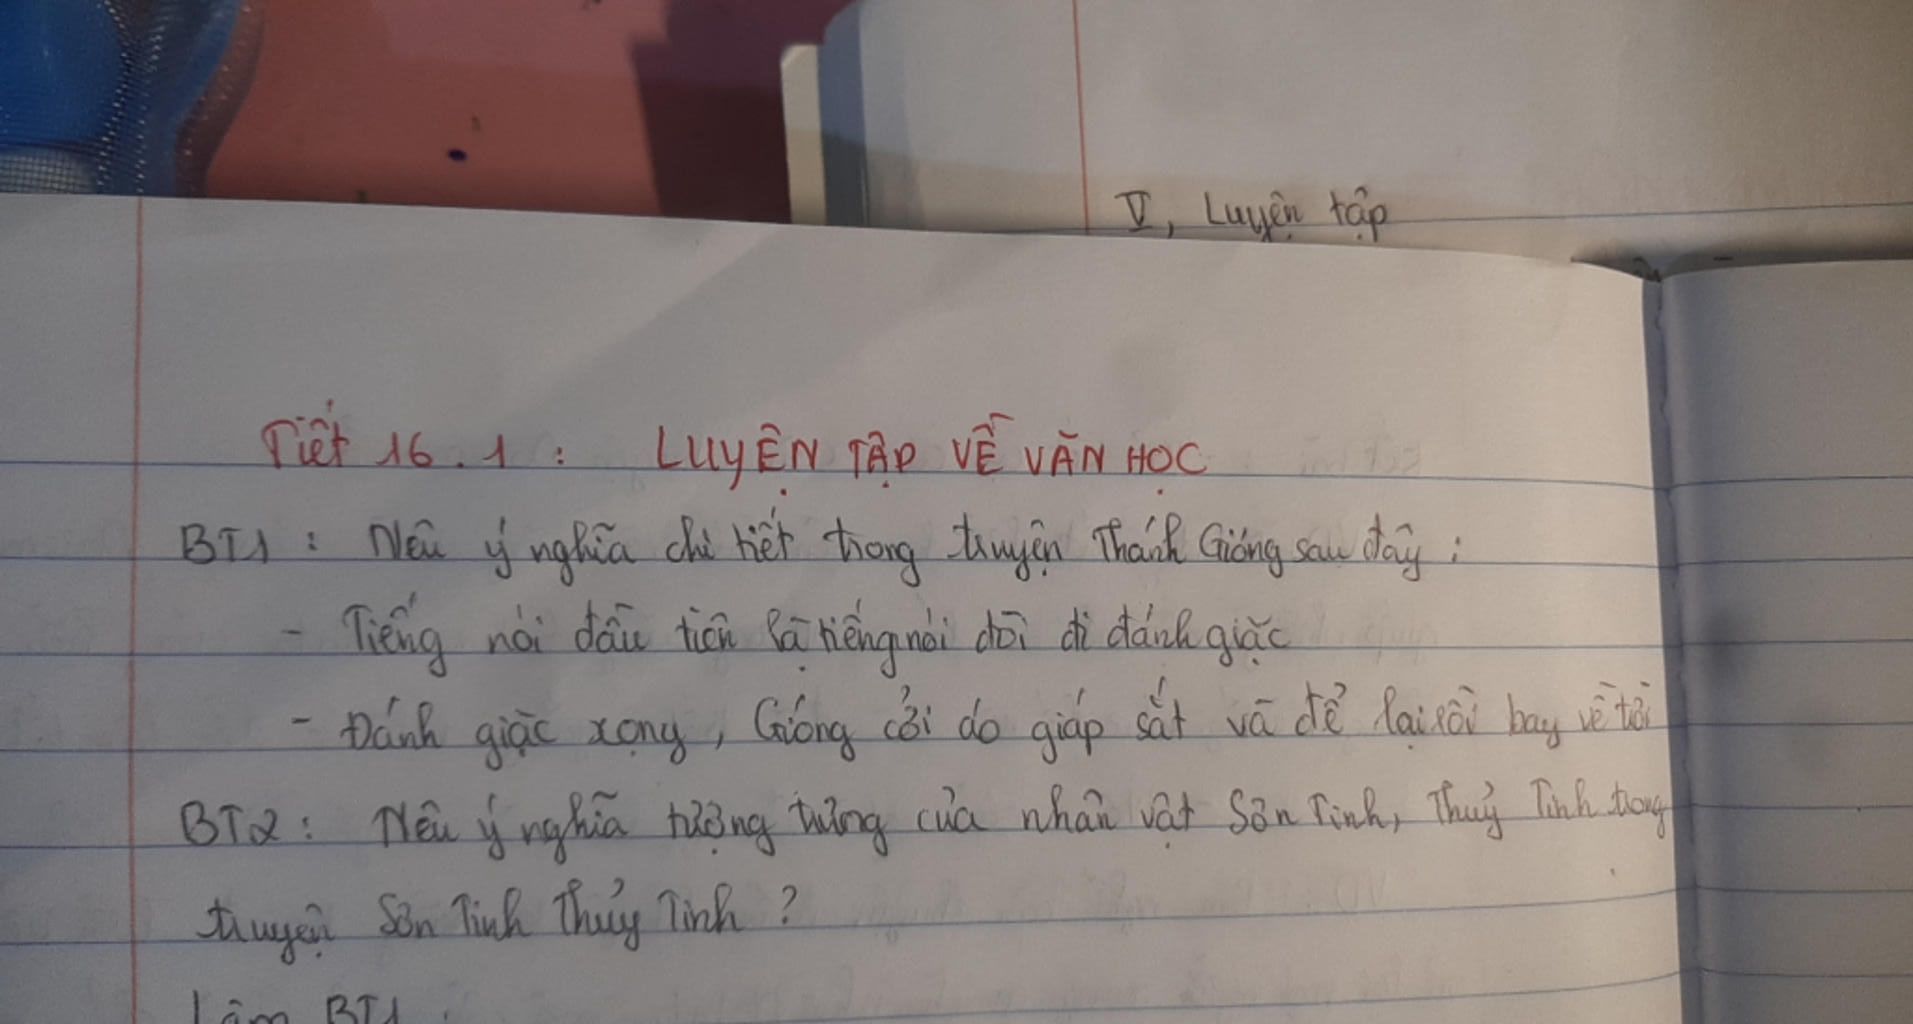 V, Luyện tập
Tiết 16.1: LUYỆN TẬP VỀ VĂN HỌC
BT1: Nêu ý nghĩa chi tiết trong truyện Thánh Gióng sau đây:
- Tiếng nói đầu tiên là tiếng nói đòi đi đánh giặc
- Đánh giặc xong, Gióng cởi áo giáp sắt và để lại rồi bay về trời
BT2: Nêu ý nghĩa tượng trưng của nhân vật Sơn Tinh, Thuỷ Tinh trong
truyện Sơn Tinh Thủy Tinh?
Làm BT1: